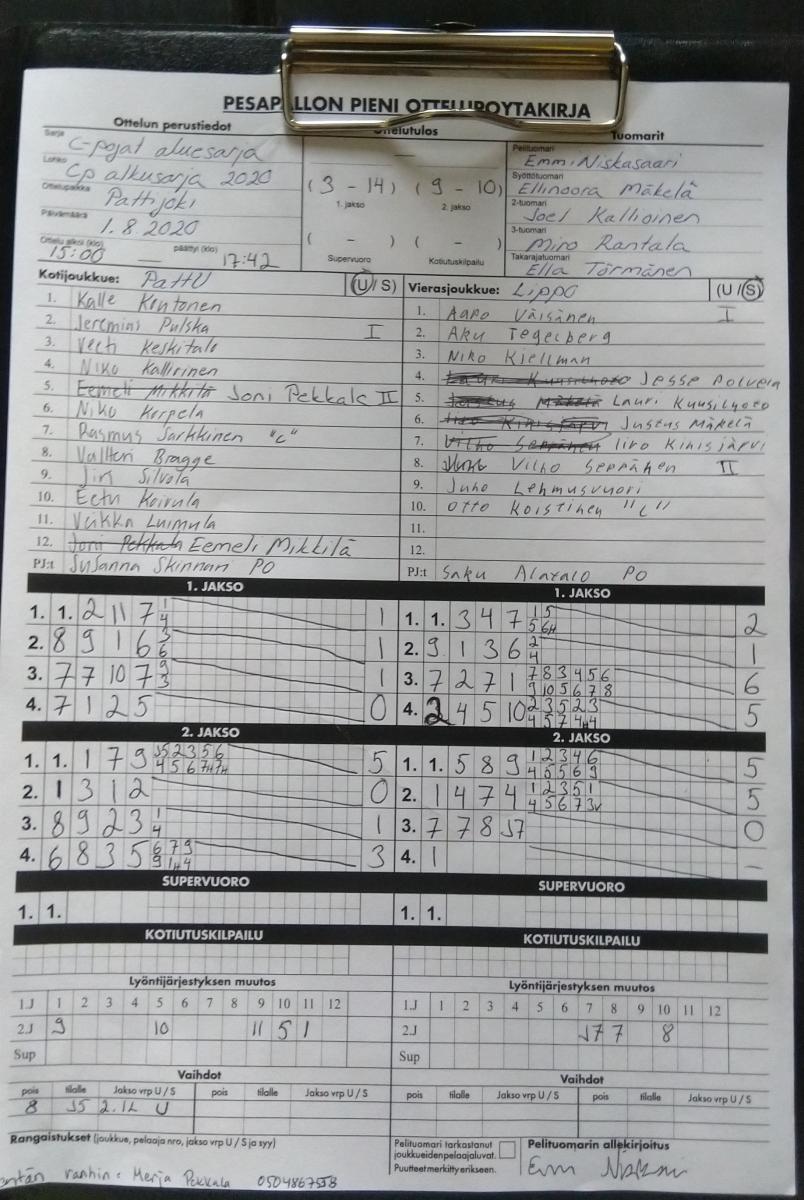 PESAPALLON PIENI OTTELUPÖYTÄKIRJA
Ottelun perustiedot
Sarja C-pojat aluesarja
Lohko Cp alkusarja 2020
Ottelupaikka Pattijoki
Päivämäärä 1.8.2020
Ottelu alkoi (klo) 15:00 — päättyi (klo) 17:42
Ottelutulos
—
(3 - 14) (9 - 10)
1. jakso 2. jakso
( - ) ( - )
Supervuoro Kotiutuskilpailu
Tuomarit
Pelituomari Emmi Niskasaari
Syöttötuomari Ellinoora Mäkelä
2-tuomari Joel Kallioinen
3-tuomari Miro Rantala
Takarajatuomari Ella Törmänen
Kotijoukkue: PattU (U/S)
1. Kalle Kontonen
2. Jeremias Pulska I
3. Veeti Keskitalo
4. Niko Kallinen
5. Eemeli Mikkilä Joni Pekkala II
6. Niko Korpela
7. Rasmus Sarkkinen "C"
8. Valtteri Bragge
9. Jiri Silvola
10. Eetu Koivula
11. Veikka Luimula
12. Joni Pekkala Eemeli Mikkilä
PJ:t Susanna Skinnari PO
Vierasjoukkue: Lippo (U/S)
1. Aapo Väisänen I
2. Aku Tegelberg
3. Niko Kjellman
4. Jesse Polvela
5. Justus Mäkelä Lauri Kuusiluoto
6. Iiro Kinisjärvi Justus Mäkelä
7. Vilho Seppänen Iiro Kinisjärvi
8. Vilho Seppänen II
9. Juho Lehmusvuori
10. Otto Koistinen "C"
11.
12.
PJ:t Saku Alatalo PO
1. JAKSO
1. 1. 2 11 7 1 1
4
2. 8 9 1 6 3 1
6
3. 7 7 10 7 9 1
3
4. 7 1 2 5 0
1. JAKSO
1. 1. 3 4 7 1 5 2
5 6H
2. 9 1 3 6 2 1
4
3. 7 2 7 1 7 8 3 4 5 6 6
9 10 5 6 7 8
4. 2 4 5 10 2 3 5 2 3 5
4 5 7 4H 4
2. JAKSO
1. 1. 1 7 9 J5 2 3 5 6 5
4 5 6 7H 7H
2. 1 3 1 2 0
3. 8 9 2 3 1 1
4
4. 6 8 3 5 6 7 9 3
9 1H 4
2. JAKSO
1. 1. 5 8 9 1 2 3 4 6 5
4 5 5 6 9
2. 1 4 7 4 1 2 3 5 1 5
4 5 6 7 3v
3. 7 7 8 J7 0
4. 1 –
SUPERVUORO
1. 1.
SUPERVUORO
1. 1.
KOTIUTUSKILPAILU
KOTIUTUSKILPAILU
Lyöntijärjestyksen muutos
1.J 1 2 3 4 5 6 7 8 9 10 11 12
2.J 9 10 11 5 1
Sup
Lyöntijärjestyksen muutos
1.J 1 2 3 4 5 6 7 8 9 10 11 12
2.J J7 7 8
Sup
Vaihdot
pois tilalle Jakso vrp U / S pois tilalle Jakso vrp U / S
8 J5 2. 1L U
Vaihdot
pois tilalle Jakso vrp U / S pois tilalle Jakso vrp U / S
Rangaistukset (joukkue, pelaaja nro, jakso vrp U / S ja syy)
vanhin: Merja Pekkala 0504867558
Pelituomari tarkastanut
joukkueiden pelaajaluvat.
Puutteet merkitty erikseen.
Pelituomarin allekirjoitus